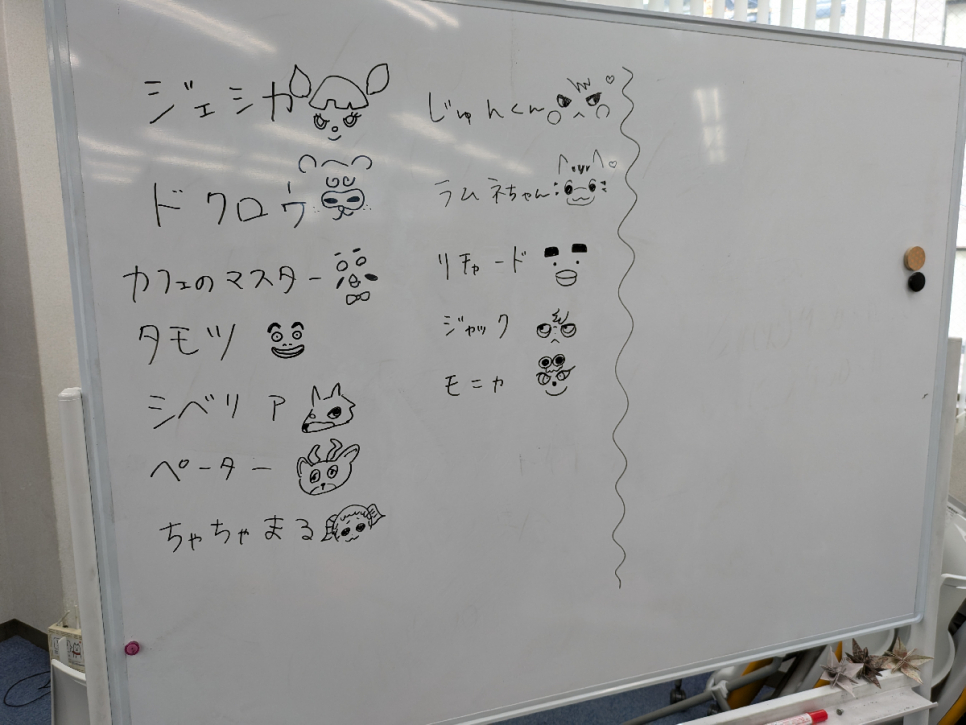 ジェシカ
ドクロウ
カフェのマスター
タモツ
シベリア
ペーター
ちゃちゃまる
じゅんくん
ラムネちゃん
リチャード
ジャック
モニカ